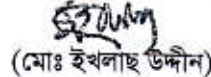 (মোঃ ইখলাছ উদ্দীন)